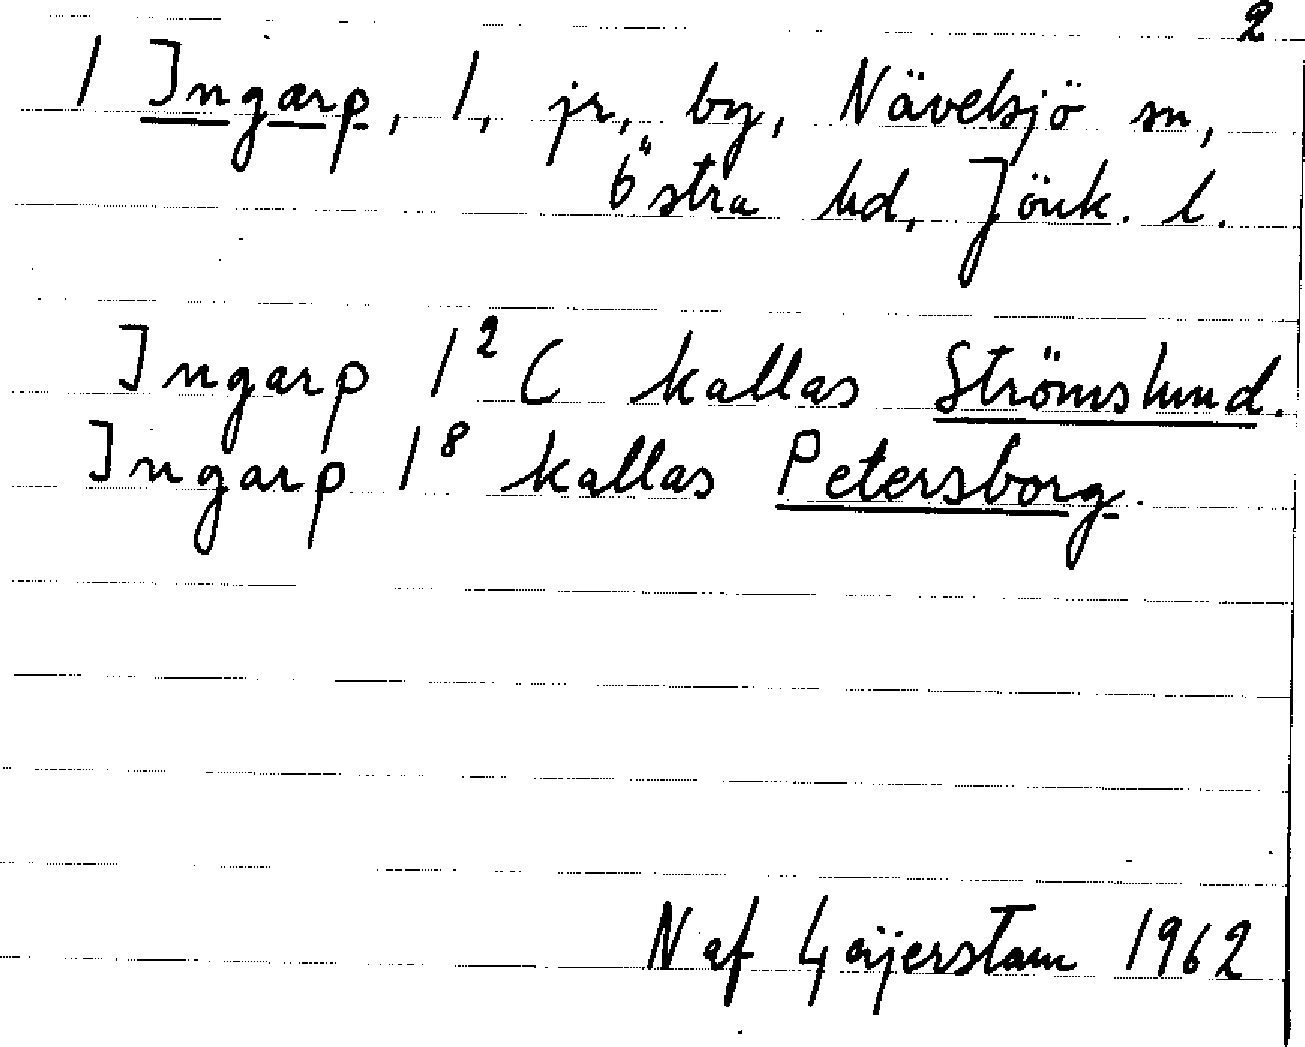 2
1 Ingarp, 1, jr, by, Nävelsjö sn,
Östra hd, Jönk. l.
Ingarp 1² C kallas Strömslund.
Ingarp 1⁸ kallas Petersborg.
N af Geijerstam 1962